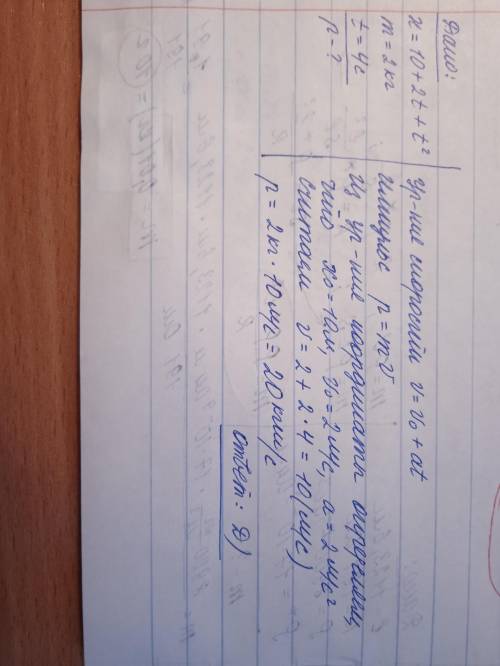 Дано:
x = 10 + 2t + t²
m = 2 кг
t = 4с
p - ?
Ур-ние скорости v = v₀ + at
импульс p = mv
Из ур-ние координаты определяем,
что x₀ = 10м, v₀ = 2 м/с, a = 2 м/с²
считаем v = 2 + 2 · 4 = 10 (м/с)
p = 2кг · 10 м/с = 20 кгм/с
ответ: D)